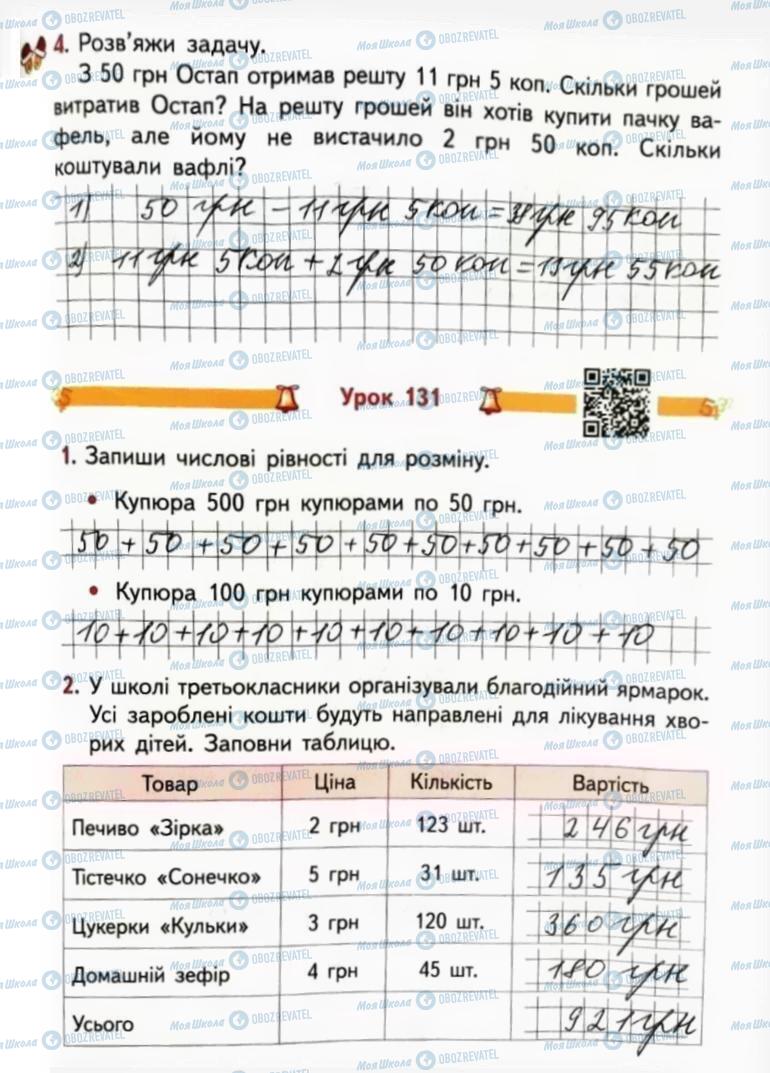 4. Розв'яжи задачу.
З 50 грн Остап отримав решту 11 грн 5 коп. Скільки грошей
витратив Остап? На решту грошей він хотів купити пачку ва-
фель, але йому не вистачило 2 грн 50 коп. Скільки
коштували вафлі?
1) 50 грн - 11 грн 5 коп = 38 грн 95 коп
2) 11 грн 5 коп + 2 грн 50 коп = 13 грн 55 коп
Урок 131
1. Запиши числові рівності для розміну.
• Купюра 500 грн купюрами по 50 грн.
50 + 50 + 50 + 50 + 50 + 50 + 50 + 50 + 50 + 50
• Купюра 100 грн купюрами по 10 грн.
10 + 10 + 10 + 10 + 10 + 10 + 10 + 10 + 10 + 10
2. У школі третьокласники організували благодійний ярмарок.
Усі зароблені кошти будуть направлені для лікування хво-
рих дітей. Заповни таблицю.
Товар Ціна Кількість Вартість
Печиво «Зірка» 2 грн 123 шт. 246 грн
Тістечко «Сонечко» 5 грн 31 шт. 135 грн
Цукерки «Кульки» 3 грн 120 шт. 360 грн
Домашній зефір 4 грн 45 шт. 180 грн
Усього 921 грн
МояШкола OBOZREVATEL